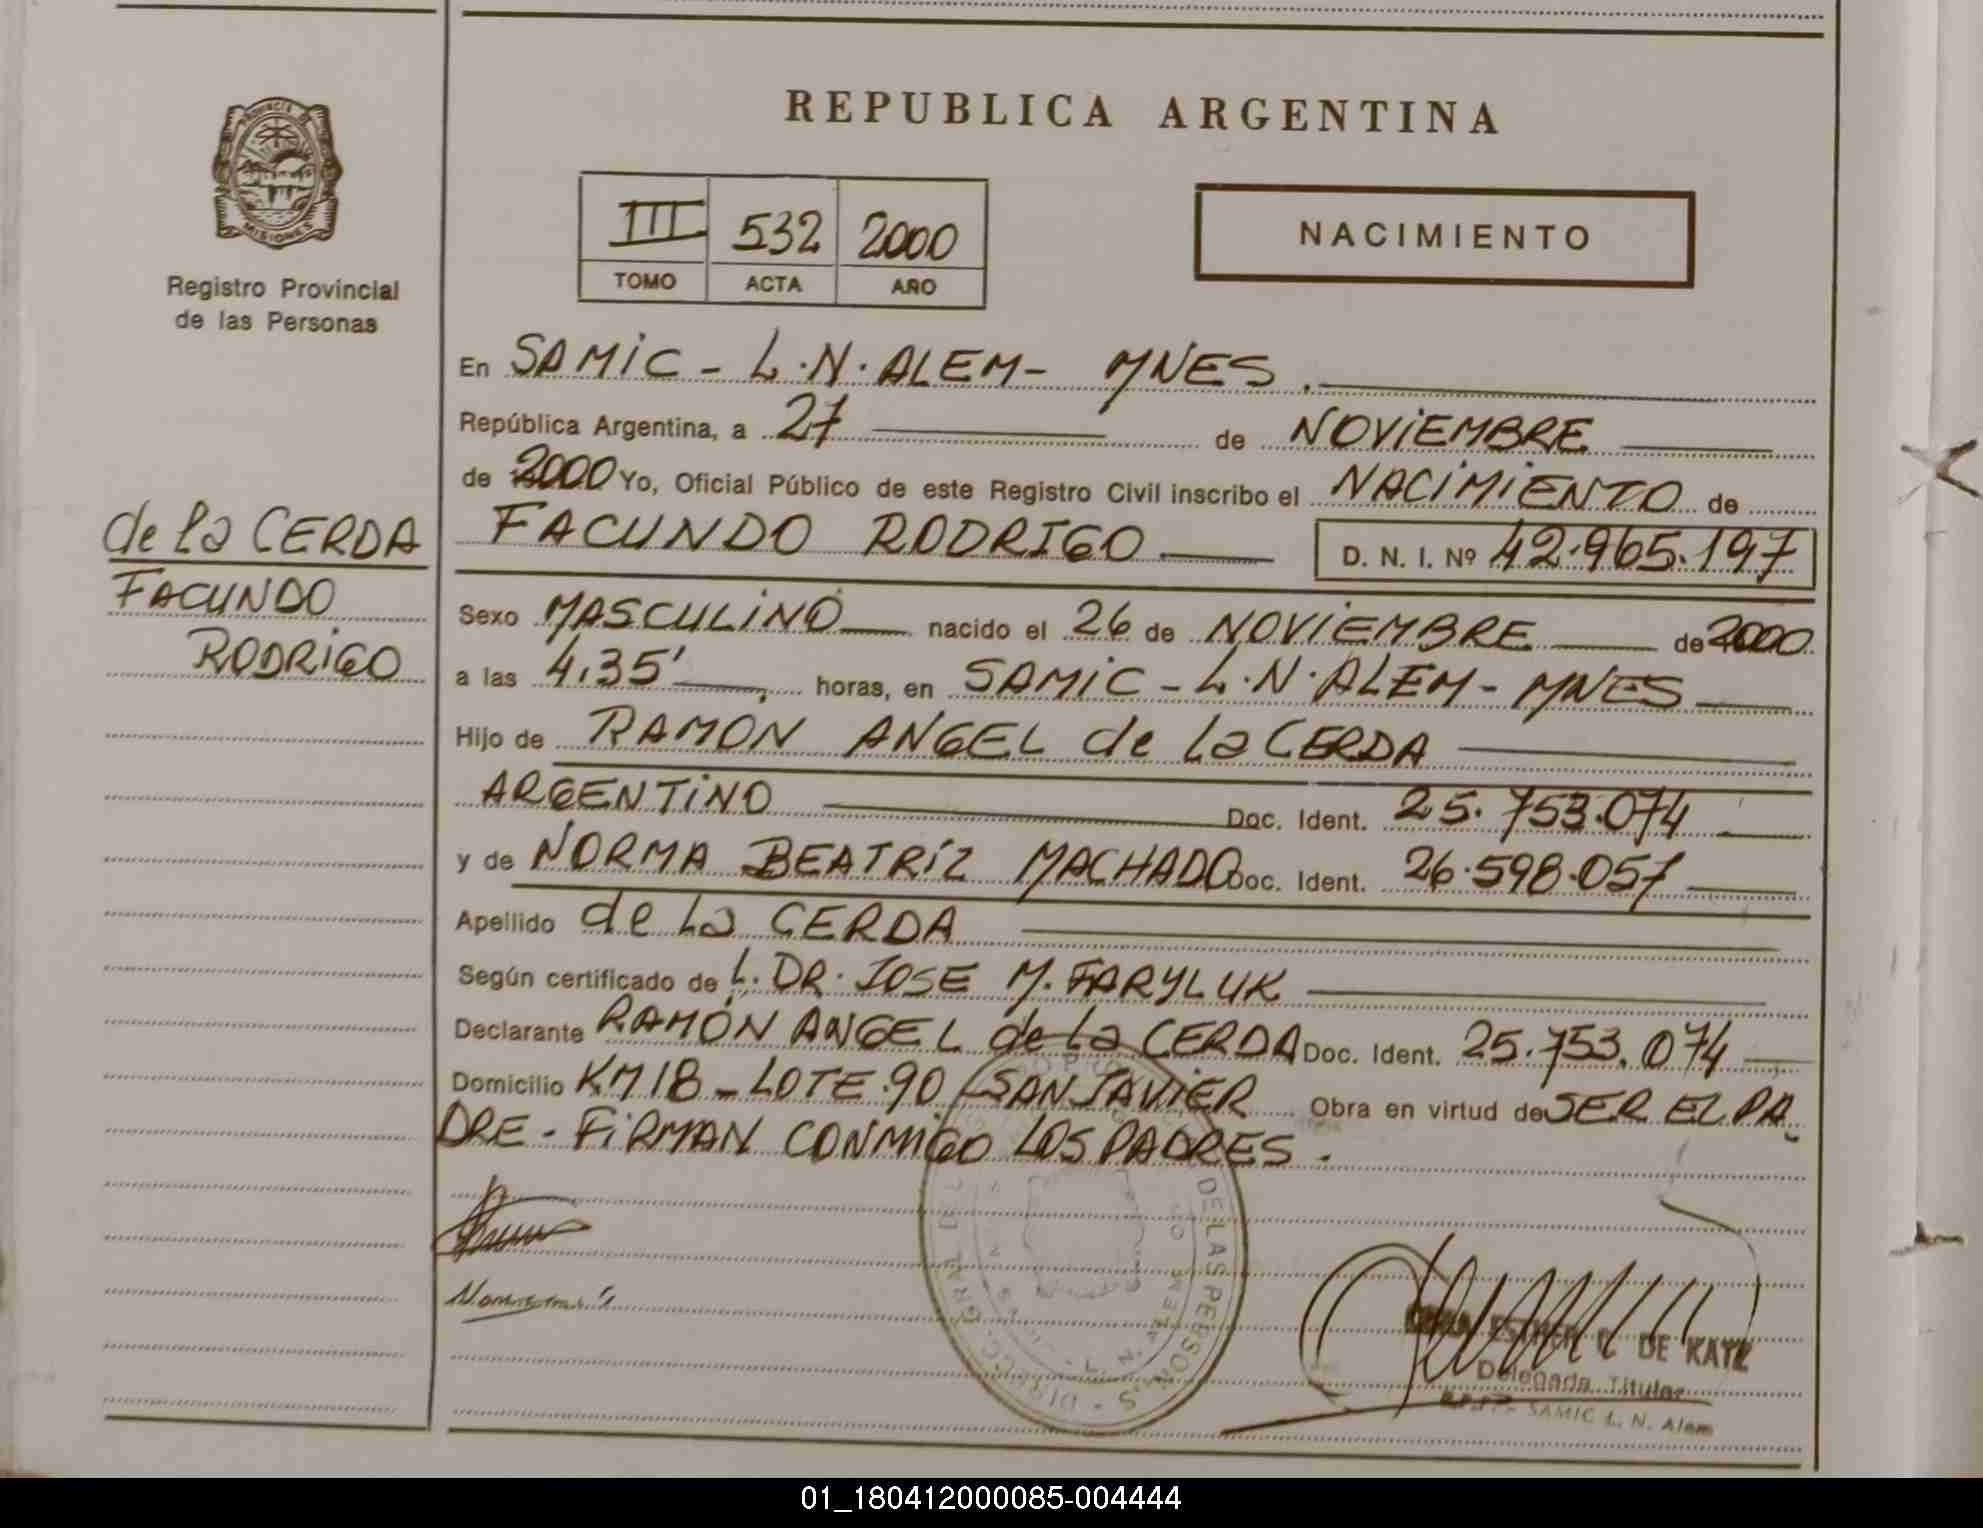 REPUBLICA ARGENTINA
PROVINCIA D
MISIONES
Registro Provincial
de las Personas
III 532 2000
TOMO ACTA AÑO
NACIMIENTO
En SAMIC - L.N.ALEM - MNES.
República Argentina, a 27 de NOVIEMBRE
de 2000 Yo, Oficial Público de este Registro Civil inscribo el NACIMIENTO de
de la CERDA
FACUNDO
RODRIGO
FACUNDO RODRIGO D. N. I. Nº 42.965.197
Sexo MASCULINO nacido el 26 de NOVIEMBRE de 2000
a las 4,35' horas, en SAMIC - L.N.ALEM - MNES
Hijo de RAMON ANGEL de la CERDA
ARGENTINO Doc. Ident. 25.753.074
y de NORMA BEATRIZ MACHADO Doc. Ident. 26.598.057
Apellido de la CERDA
Según certificado de L. DR. JOSE M. FARYLUK
Declarante RAMÓN ANGEL de la CERDA Doc. Ident. 25.753.074
Domicilio KM 18 - LOTE.90 - SAN JAVIER Obra en virtud de SER EL PA
DRE - FIRMAN CONMIGO LOS PADRES.
DE LAS PERSONAS
ESTHER DE KATZ
Delegada Titular
SAMIC L. N. Alem
01_180412000085-004444